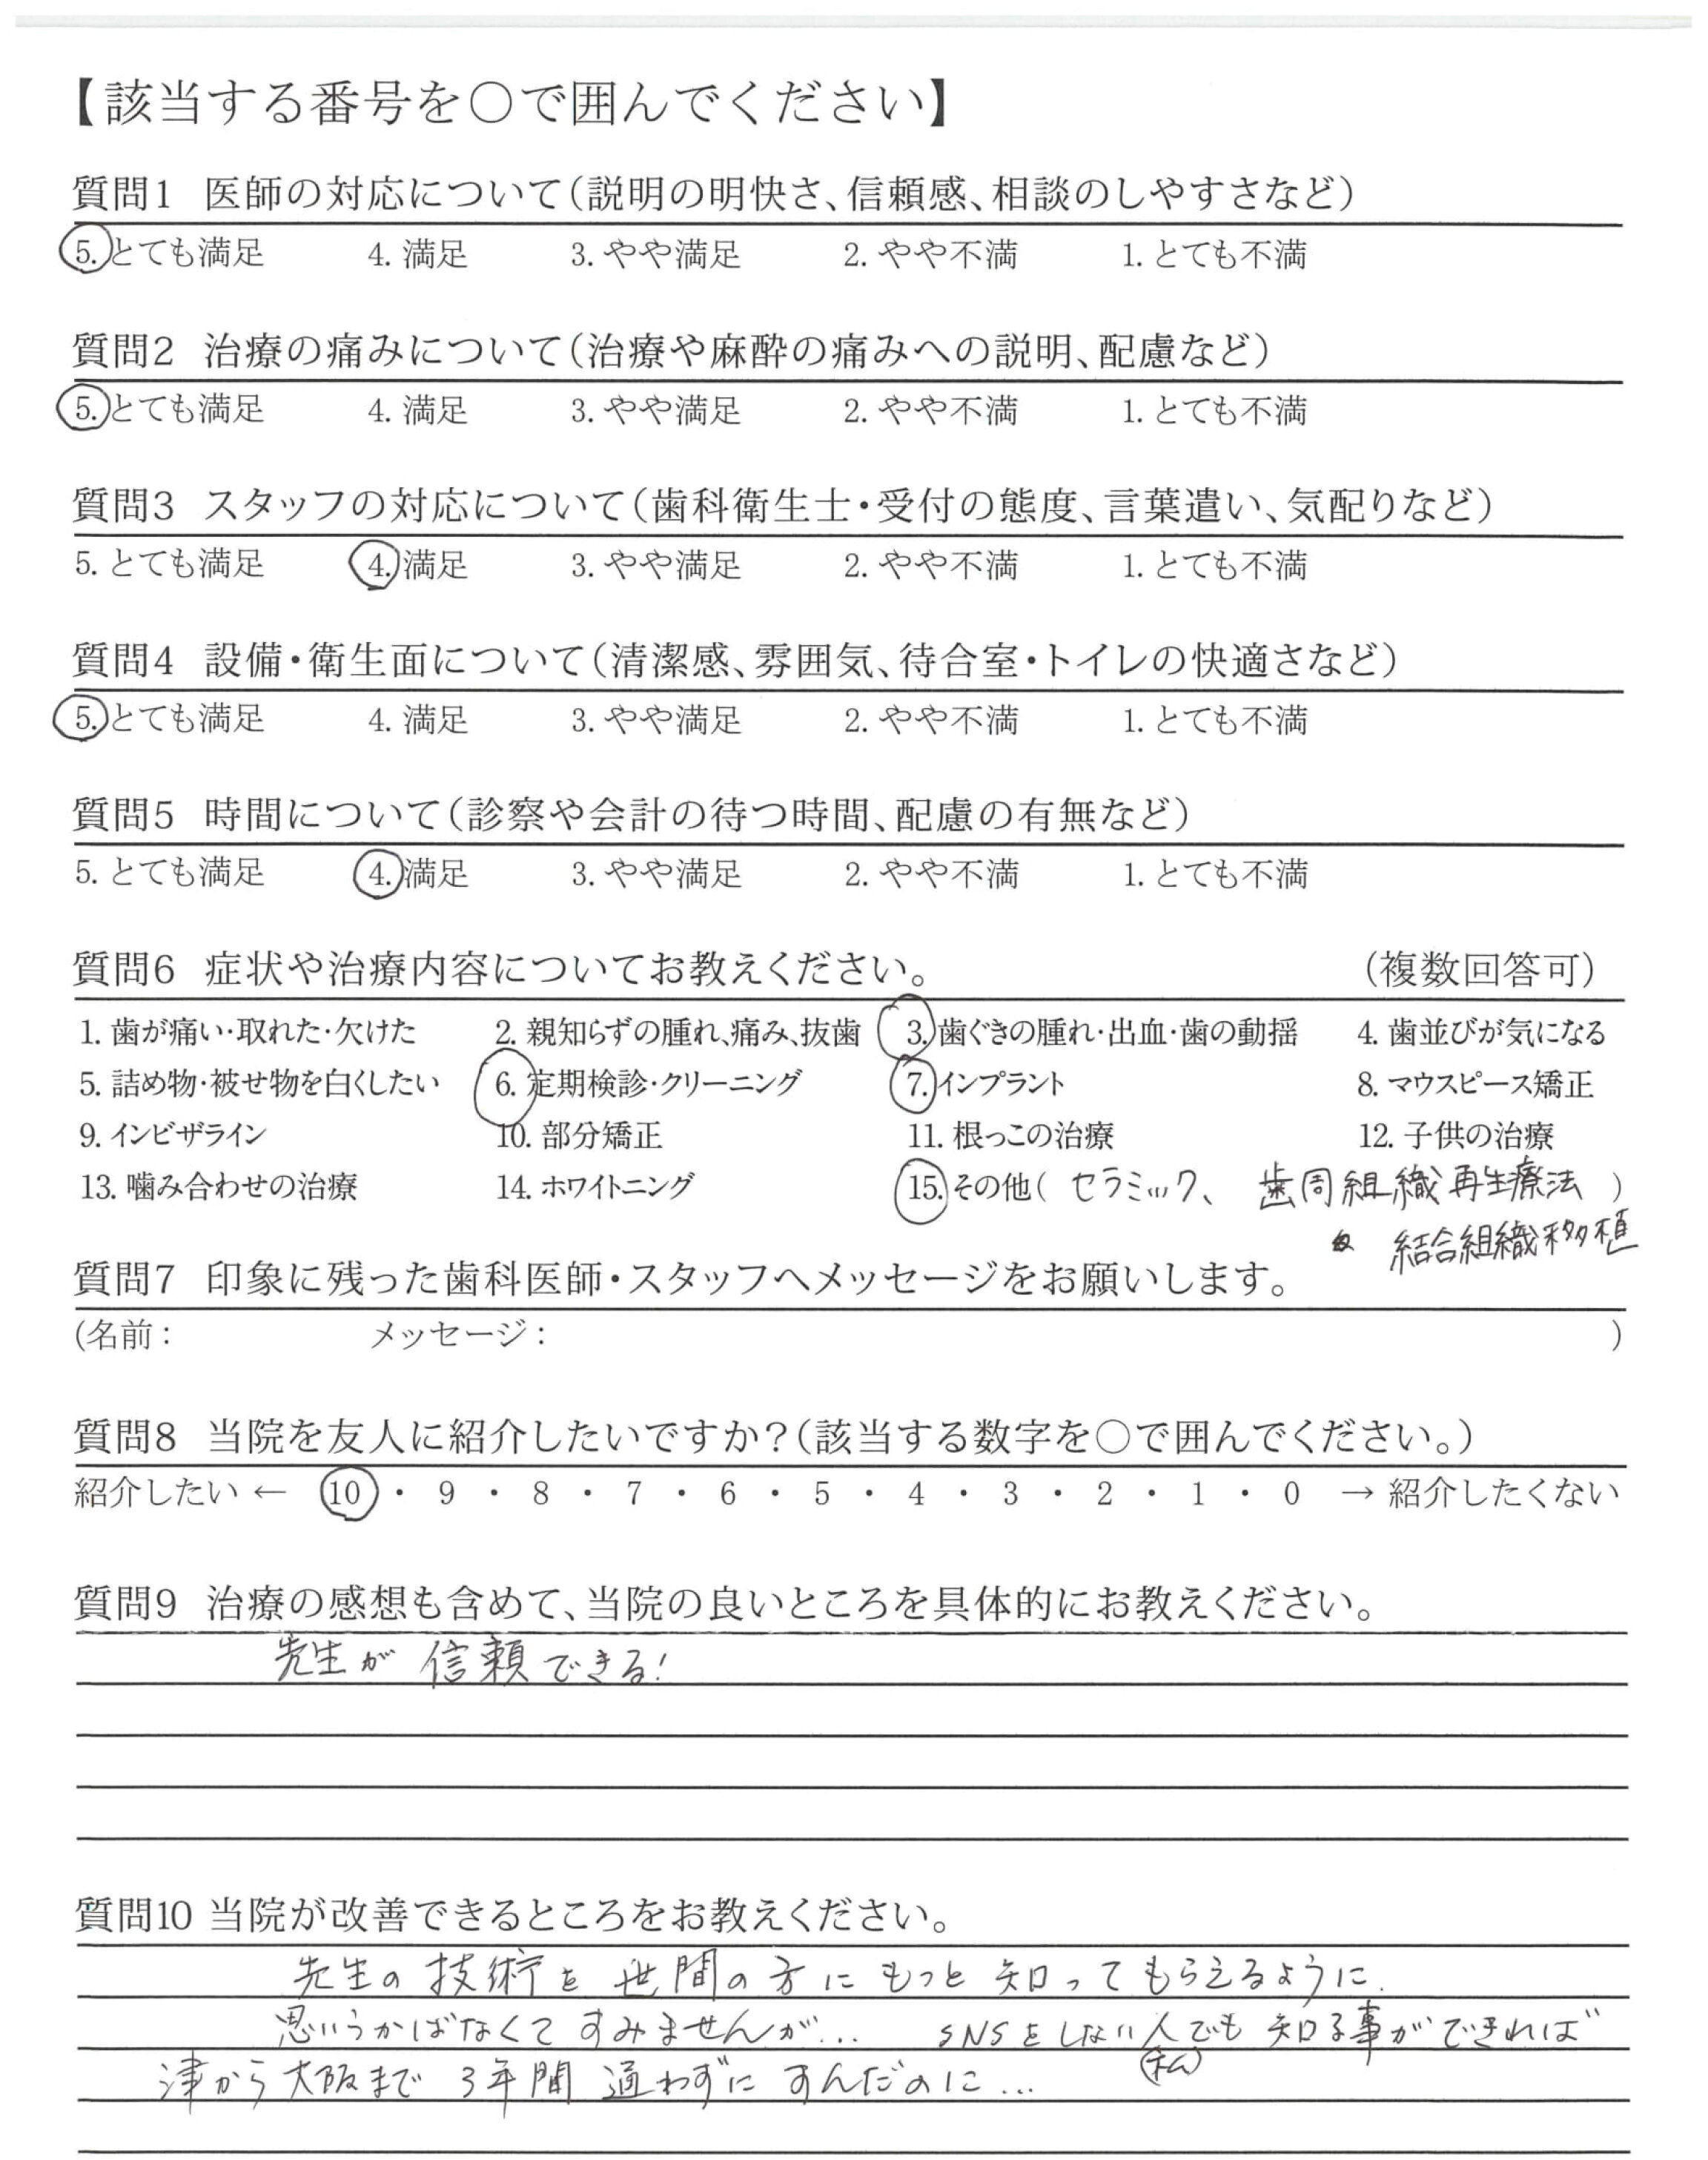 【該当する番号を○で囲んでください】
質問1 医師の対応について(説明の明快さ、信頼感、相談のしやすさなど)
5. とても満足 4. 満足 3. やや満足 2. やや不満 1. とても不満
質問2 治療の痛みについて(治療や麻酔の痛みへの説明、配慮など)
5. とても満足 4. 満足 3. やや満足 2. やや不満 1. とても不満
質問3 スタッフの対応について(歯科衛生士・受付の態度、言葉遣い、気配りなど)
5. とても満足 4. 満足 3. やや満足 2. やや不満 1. とても不満
質問4 設備・衛生面について(清潔感、雰囲気、待合室・トイレの快適さなど)
5. とても満足 4. 満足 3. やや満足 2. やや不満 1. とても不満
質問5 時間について(診察や会計の待つ時間、配慮の有無など)
5. とても満足 4. 満足 3. やや満足 2. やや不満 1. とても不満
質問6 症状や治療内容についてお教えください。 (複数回答可)
1. 歯が痛い・取れた・欠けた 2. 親知らずの腫れ、痛み、抜歯 3. 歯ぐきの腫れ・出血・歯の動揺 4. 歯並びが気になる
5. 詰め物・被せ物を白くしたい 6. 定期検診・クリーニング 7. インプラント 8. マウスピース矯正
9. インビザライン 10. 部分矯正 11. 根っこの治療 12. 子供の治療
13. 噛み合わせの治療 14. ホワイトニング 15. その他( セラミック、 歯周組織再生療法 )
結合組織移植
質問7 印象に残った歯科医師・スタッフへメッセージをお願いします。
(名前: メッセージ: )
質問8 当院を友人に紹介したいですか?(該当する数字を○で囲んでください。)
紹介したい ← 10 ・ 9 ・ 8 ・ 7 ・ 6 ・ 5 ・ 4 ・ 3 ・ 2 ・ 1 ・ 0 → 紹介したくない
質問9 治療の感想も含めて、当院の良いところを具体的にお教えください。
先生が 信頼できる!
質問10 当院が改善できるところをお教えください。
先生の 技術を 世間の方に もっと 知ってもらえるように.
思いうかばなくて すみませんが… SNSをしない人でも 知る事ができれば
(私)
津から大阪まで 3年間 通わずに すんだのに…